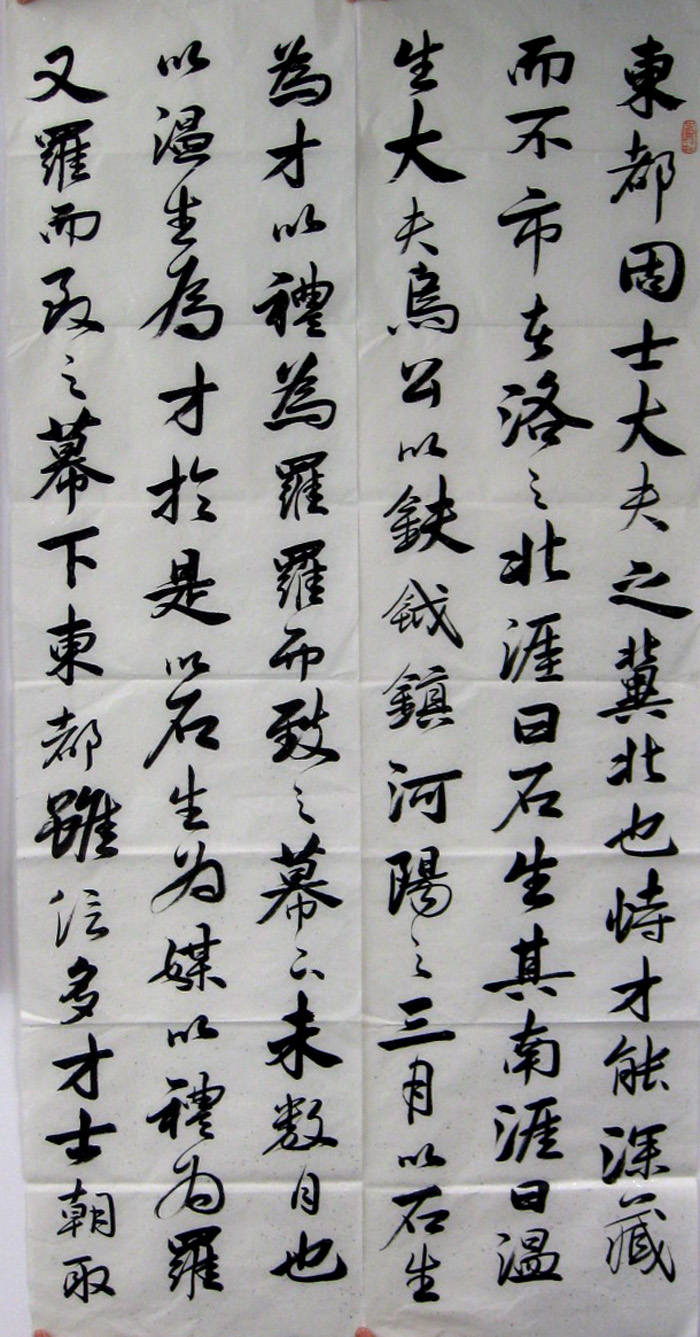 東都固士大夫之冀北也恃才能深藏
而不市者洛之北涯曰石生其南涯曰温
生大夫烏公以鈇鉞鎮河陽之三月以石生
為才以禮為羅羅而致之幕下未數月也
以温生為才於是以石生为媒以禮为羅
又羅而致之幕下東都雖信多才士朝取